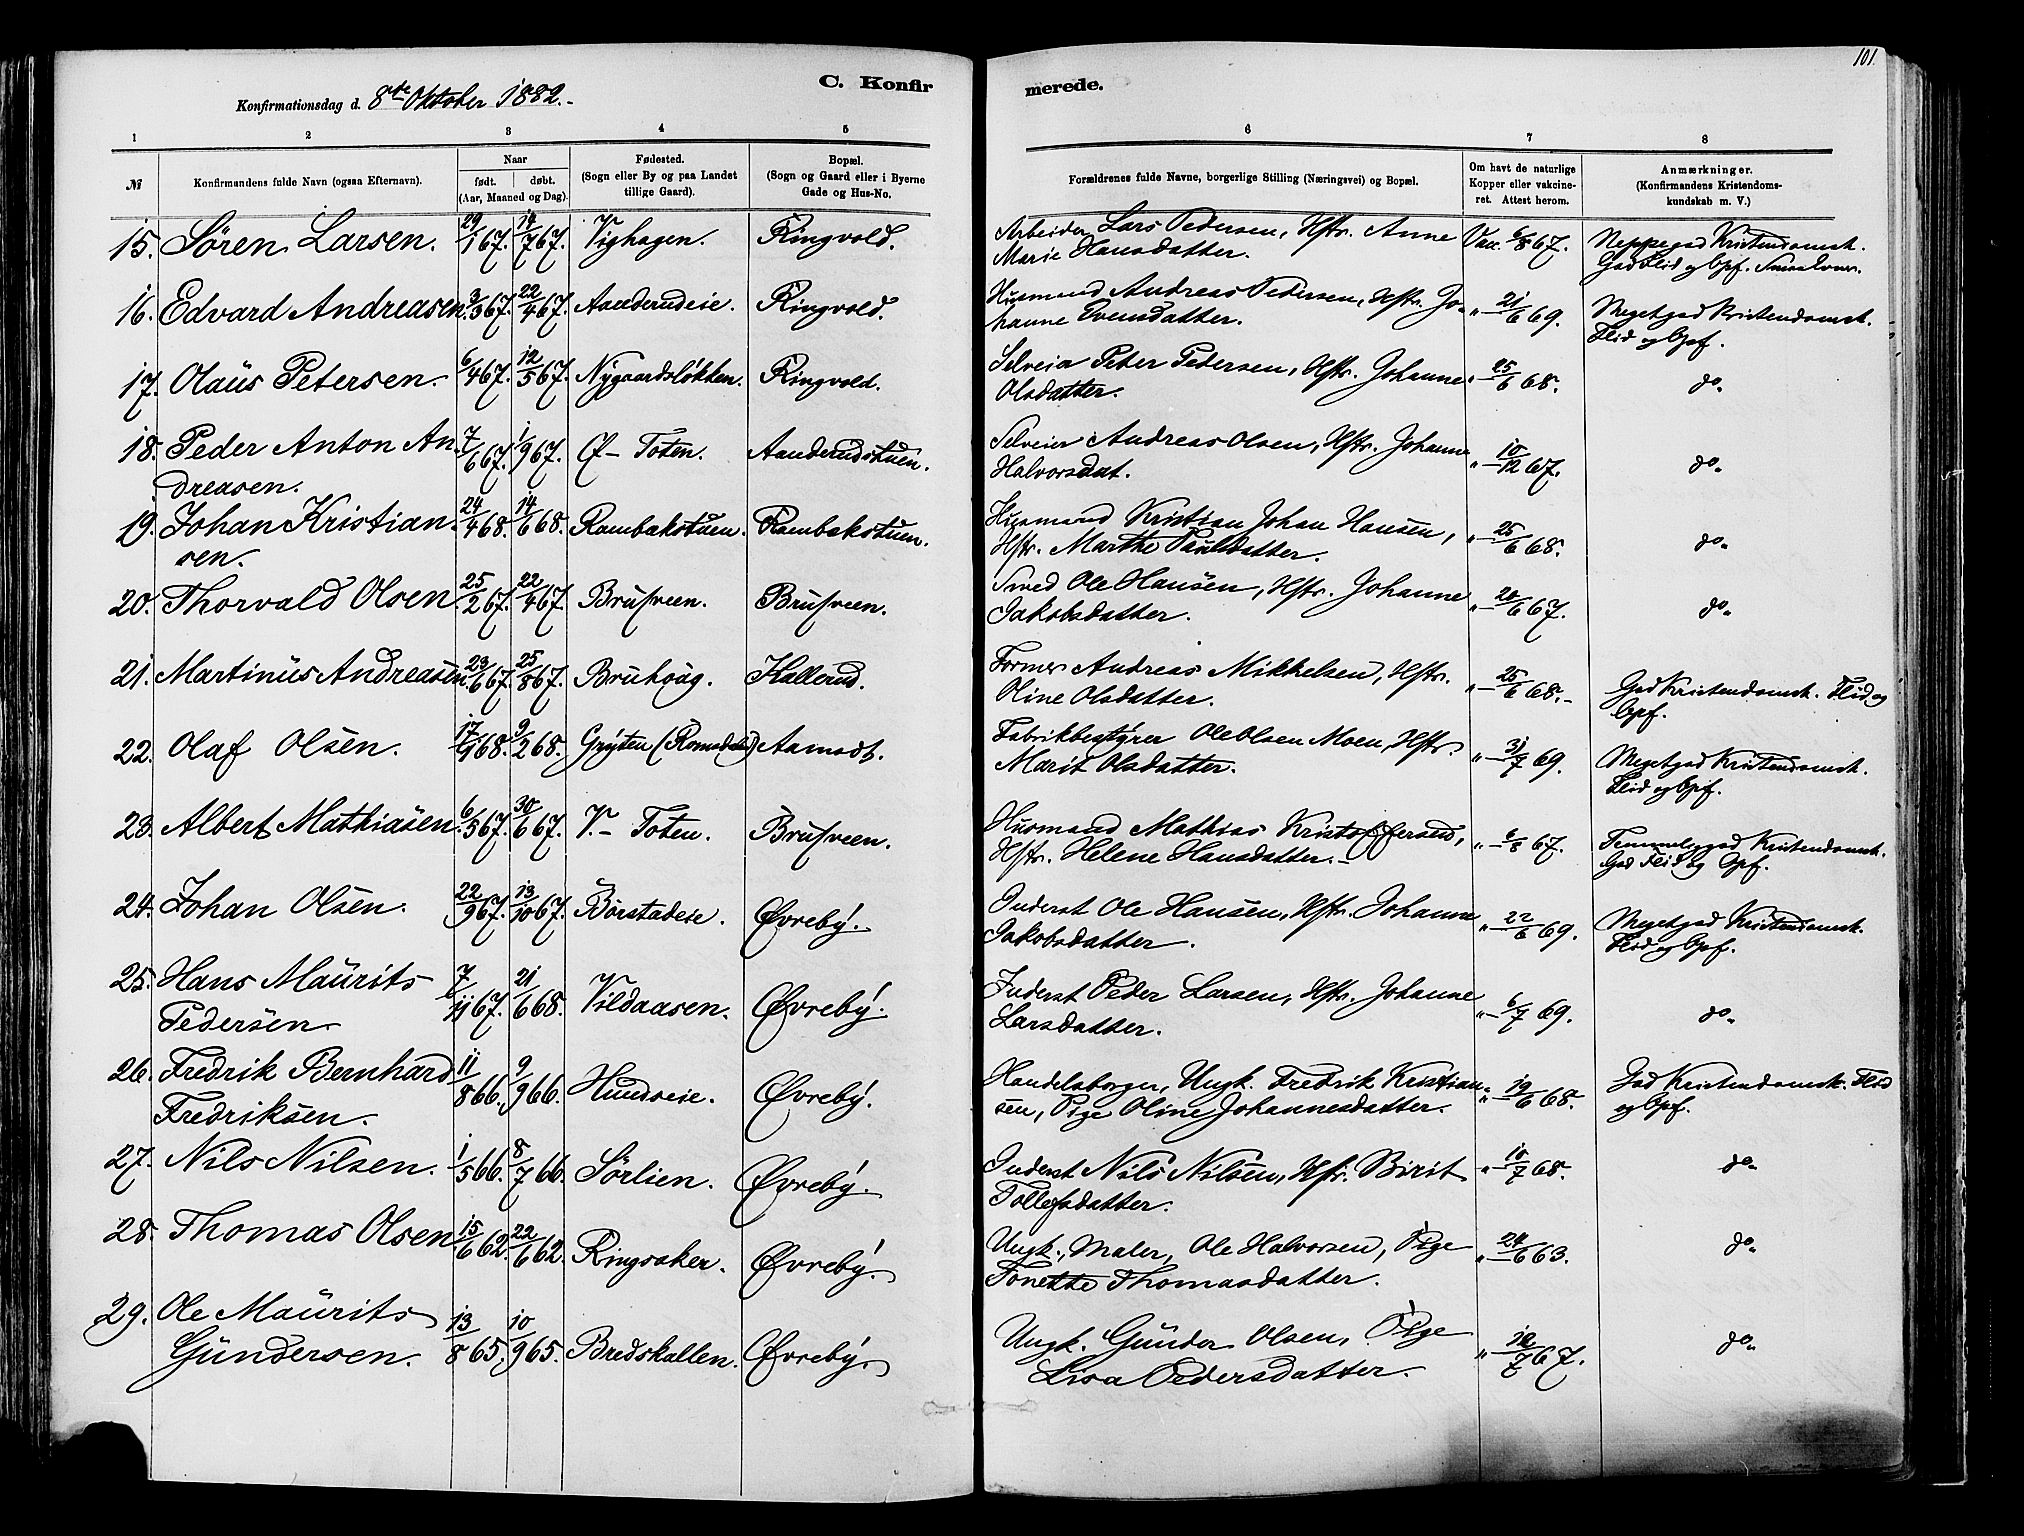 101.
C. Konfir merede.
Konfirmationsdag d. 8de Oktober 1882.-
1 2 3 4 5 6 7 8
№ Konfirmandens fulde Navn (ogsaa Efternavn). Naar født. døbt. (Aar, Maaned og Dag). Fødested. (Sogn eller By og paa Landet tillige Gaard). Bopæl. (Sogn og Gaard eller i Byerne Gade og Hus-No. Forældrenes fulde Navne, borgerlige Stilling (Næringsvei) og Bopæl. Om havt de naturlige Kopper eller vakcineret. Attest herom. Anmærkninger. (Konfirmandens Kristendomskundskab m. V.)
15. Søren Larsen. 29/1 67. 14/7 67. Vighagen. Ringvold. Arbeider Lars Pedersen, Hstr. Anne Vac. 6/8 67. Neppe god Kristendomsk.
Marie Hansdatter. God Flid og Opf.
16. Edvard Andreasen. 3/3 67. 22/4 67. Aanderudeie. Ringvold. Husmand Andreas Pedersen, Hstr. Jo- „ — 21/6 69. Megetgod Kristendomsk.
hanne Evensdatter. Flid og Opf.
17. Olaüs Petersen. 6/4 67. 12/5 67. Nygaardsløkken. Ringvold. Selveier Peter Pedersen, Hstr. Johanne „ — 25/6 68. do.
Olsdatter.
18. Peder Anton An- 7/6 67. 1/9 67. Ø- Toten. Aanderudstuen. Selveier Andreas Olsen, Hstr. Johanne „ — 10/12 67. do.
dreasen. Halvorsdat.
19. Johan Kristian- 24/4 68. 14/6 68. Rambakstuen. Rambakstuen. Husmand Kristian Johan Hansen, „ — 25/6 68. do.
sen. Hstr. Marthe Paulsdatter.
20. Thorvald Olsen. 25/2 67. 22/4 67. Brusveen. Brusveen. Smed Ole Hansen, Hstr. Johanne „ — 20/6 67. do.
Jakobsdatter.
21. Martinüs Andreasen. 23/6 67. 25/8 67. Bruhoug. Hallerud. Former Andreas Mikkelsen, Hstr. „ — 25/6 68.- God Kristendomsk. Flid og
Oline Olsdatter. Opf.
22. Olaf Olsen. 17/1 68. 9/2 68. Gryten (Romsdalen) Aamodt. Fabrikbestyrer Ole Olsen Moen, Hstr. „ — 31/7 69. Megetgod Kristendomsk.
Marit Olsdatter. Flid og Opf.
23. Albert Mathiasen. 6/5 67. 30/6 67. V.- Toten. Brusveen. Husmand Mathias Kristoffersen, „ — 6/8 67. Temmelig god Kristendomsk.
Hstr. Helene Hansdatter.- God Flid og Opf.
24. Johan Olsen. 22/9 67. 13/10 67. Børstadeie. Øvreby. Inderst Ole Hansen, Hstr. Johanne „ — 22/6 69. Megetgod Kristendomsk.
Jakobsdatter. Flid og Opf.
25. Hans Maürits 7/11 67. 21/6 68. Vildaasen. Øvreby. Inderst Peder Larsen, Hstr. Johanne „ — 6/7 69. do.
Pedersen Larsdatter.
26. Fredrik Bernhard 11/8 66. 9/9 66. Hundseie. Øvreby. Handelsborger, Ungk. Fredrik Kristian- „ — 19/6 68. God Kristendomsk. Flid
Fredriksen. sen, Pige Oline Johannesdatter. og Opf.
27. Nils Nilsen. 1/5 66. 8/7 66. Sørlien. Øvreby. Inderst Nils Nilsen, Hstr. Birit „ — 10/7 68. do.
Tollefsdatter.
28. Thomas Olsen. 15/6 62. 22/6 62. Ringsaker. Øvreby. Ungk., Maler, Ole Halvorsen, Pige „ — 24/6 63. do.
Tonette Thomasdatter.
29. Ole Maürits 13/8 65. 10/9 65. Bredskallen. Øvreby. Ungk. Günder Olsen, Pige „ — 7 67. do.
Gündersen. Lisa Pedersdatter.